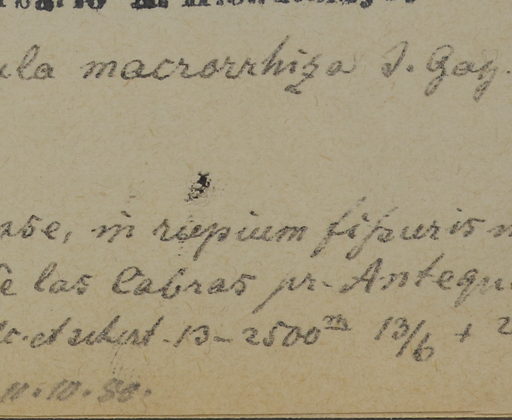 ula macrorrhiza J. Gay.
ase, in rupium fissuris
las Cabras pr. Antequ
13-2500m 13/6 + 2
11.10.80.